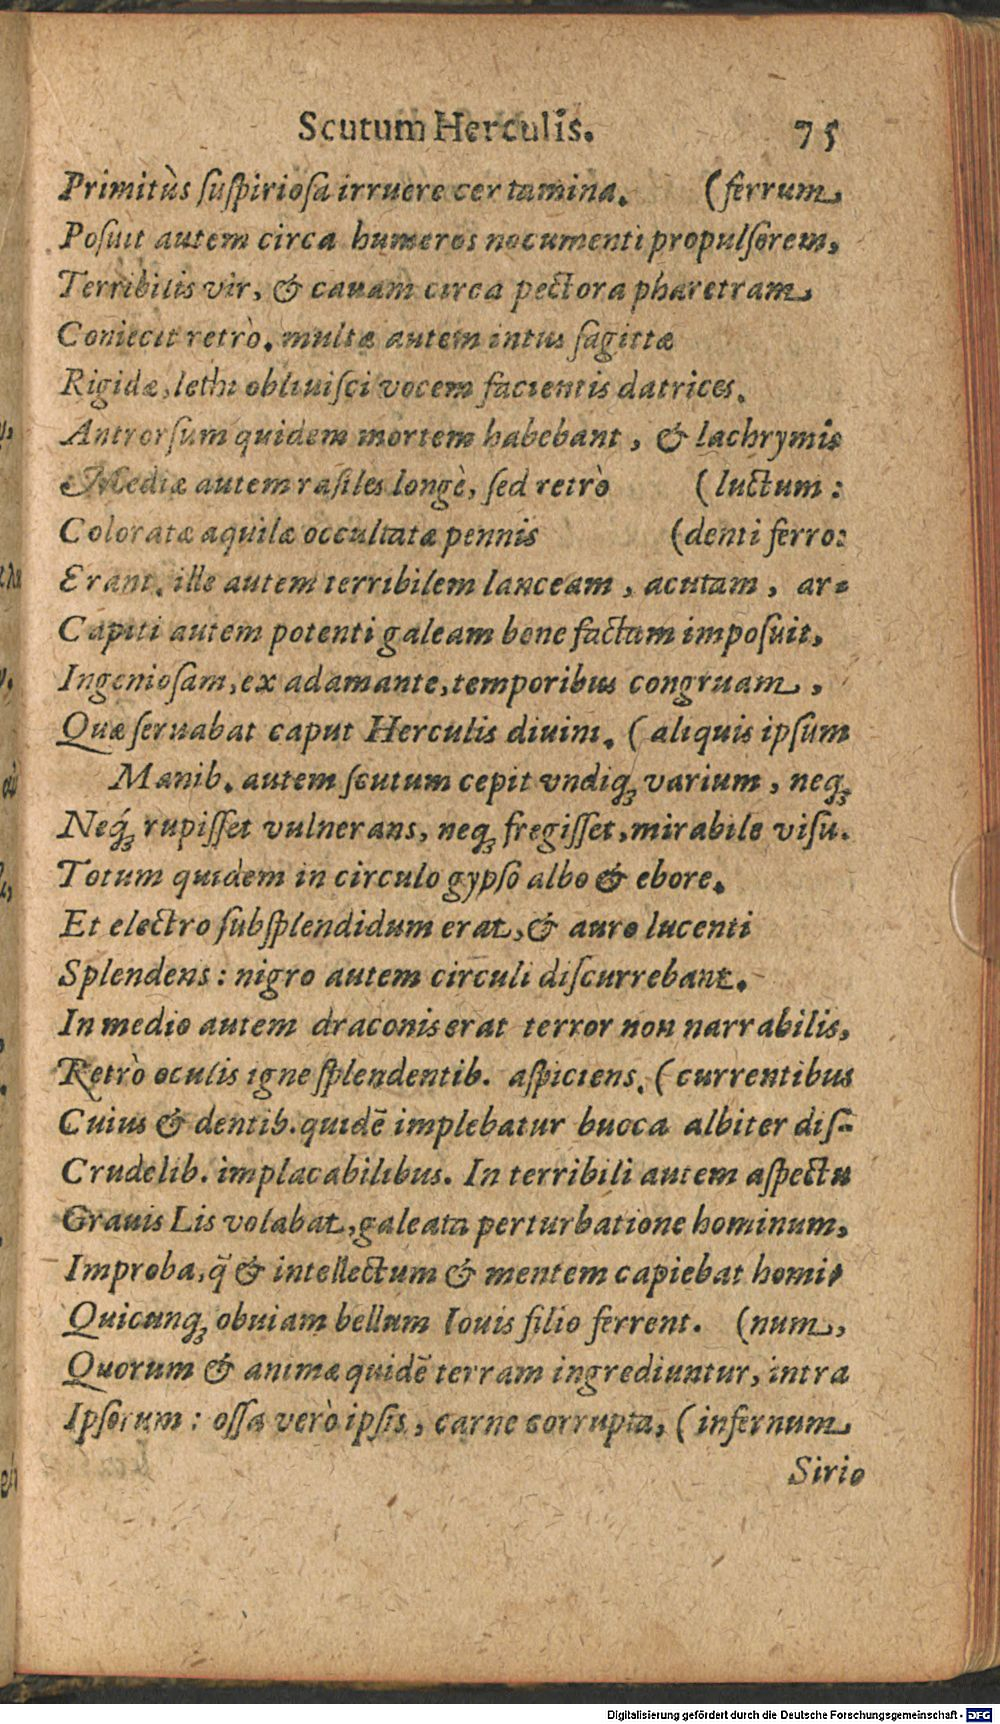 Scutum Herculis. 75
Primitùs ſuſpirioſa irruere certamina. (ferrum,
Poſuit autem circa humeros nocumenti propulſorem,
Terribilis vir, & cauam circa pectora pharetram,
Coniecit retrò. multæ autem intus ſagittæ
Rigidæ, lethi obliuiſci vocem facientis datrices.
Antrorſum quidem mortem habebant, & lachrymis
Mediæ autem raſiles longè, ſed retrò (luctum:
Coloratæ aquilæ occultatæ pennis (denti ferro:
Erant. ille autem terribilem lanceam, acutam, ar-
Capiti autem potenti galeam bene factam impoſuit,
Ingenioſam, ex adamante, temporibus congruam,
Quæ ſeruabat caput Herculis diuini. (aliquis ipſum
Manib. autem ſcutum cepit vndiqꝫ varium, neqꝫ
Neqꝫ́ rupiſſet vulnerans, neqꝫ fregiſſet, mirabile viſu.
Totum quidem in circulo gypſo albo & ebore.
Et electro ſubſplendidum erat, & auro lucenti
Splendens: nigro autem circuli diſcurrebant.
In medio autem draconis erat terror non narrabilis,
Retrò oculis igne ſplendentib. aſpiciens. (currentibus
Cuius & dentib. quidē implebatur bucca albiter diſ-
Crudelib. implacabilibus. In terribili autem aſpectu
Grauis Lis volabat, galeata perturbatione hominum,
Improba, q̃ & intellectum & mentem capiebat homi-
Quicunqꝫ obuiam bellum Iouis filio ferrent. (num,
Quorum & animæ quidē terram ingrediuntur, intra
Ipſorum: oſſa verò ipſis, carne corrupta, (infernum
Sirio
Digitalisierung gefördert durch die Deutsche Forschungsgemeinschaft - DFG